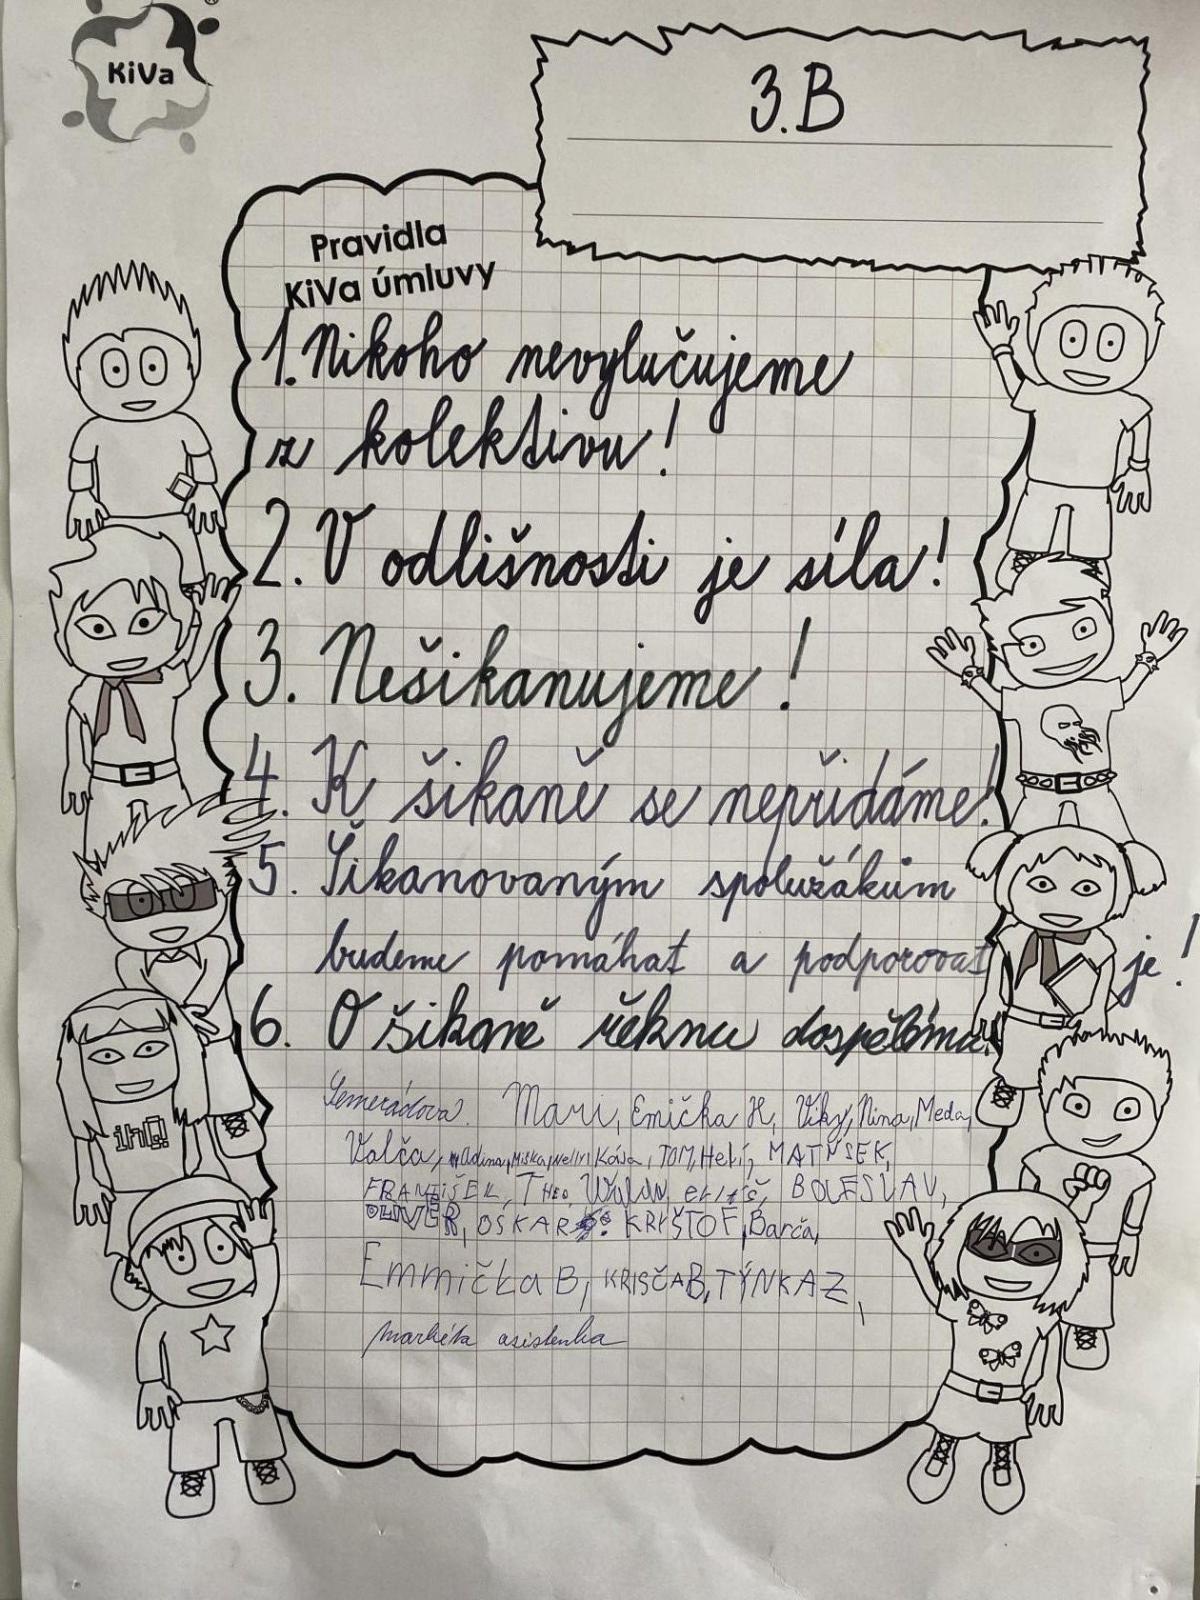 KiVa
3.B
Pravidla
KiVa úmluvy
1. Nikoho nevylučujeme
z kolektivu!
2. V odlišnosti je síla!
3. Nešikanujeme!
4. K šikaně se nepřidáme!
5. Šikanovaným spolužákům
budeme pomáhat a podporovat je!
6. O šikaně řeknu dospělému!
Semerádova. Mari, Emička H, Viky, Nina, Meda,
Valča, Adina, Miska, Nelly, Kája, TOM, Helí, MATÝSEK,
FRANTIŠEK, THEO, BOLESLAV,
OLIVER, OSKAR, KRYŠTOF, Barča,
EmmičKa B, KRISČA B, TÝNKA Z,
Markéta asistenka
inQ!